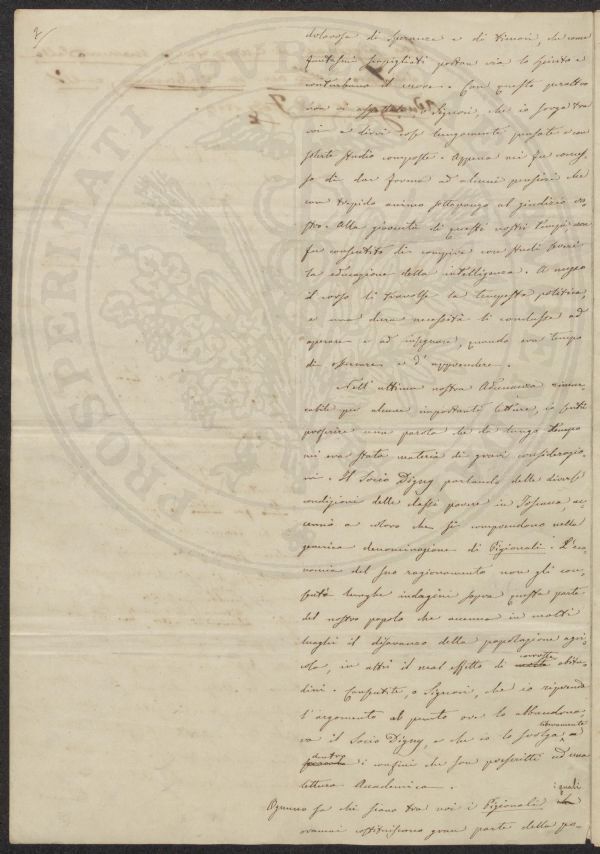 2/
dolorosa di speranze e di timori, che come
fantasmi scapigliati portan via lo spirito e
conturbano il cuore. Con questo peraltro
non vi aspettate o Signori, che io sorga tra
voi a dirvi cose lungamente pensate e con
studio composte. Appena mi fu conces-
so di dar forma ad alcuni pensieri che
con trepido animo sottopongo al giudizio vo-
stro. Alla gioventù di questi nostri tempi non
fu consentito di compire con studi severi
la educazione della intelligenza. A mezzo
il corso li travolse la tempesta politica,
e una dura necessità li condusse ad
operare e ad insegnare, quando era tempo
di osservare e d'apprendere.
Nell'ultima nostra Adunanza rimar-
cabile per alcune importanti letture, io sentii
proferire una parola che da lungo tempo
mi era stata materia di gravi considerazio-
ni. Il Socio Digny parlando delle diverse
condizioni delle classi povere in Toscana, ac-
cennò a coloro che si comprendono nella
generica denominazione di Pigionali. L'eco-
nomia del suo ragionamento non gli con-
sentì lunghe indagini sopra questa parte
del nostro popolo che accenna in molti
luoghi il disavanzo della popolazione agri-
cola, in altri il mal effetto di corrotte abitu-
dini. Consentite, o Signori, che io riprenda
l'argomento al punto ove lo abbandona-
va il Socio Digny, e che io lo svolga brevemente
dentro i confini che son prescritti ad una
lettura Accademica.
Ognuno sa chi siano tra noi i Pigionali i quali
oramai costituiscono gran parte della po-
PROSPERITATI PVBLICAE